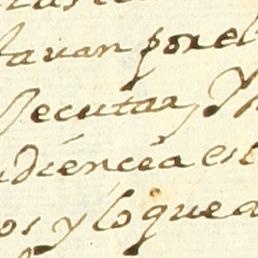 tavan por el
secutar, Y
udiencia est
os y lo que a